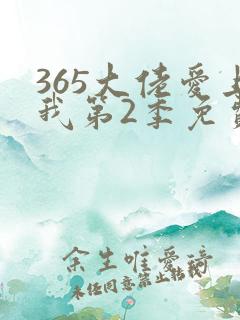 365大佬爱上
我第2季免费
余生唯爱璋
未经同意禁止转载